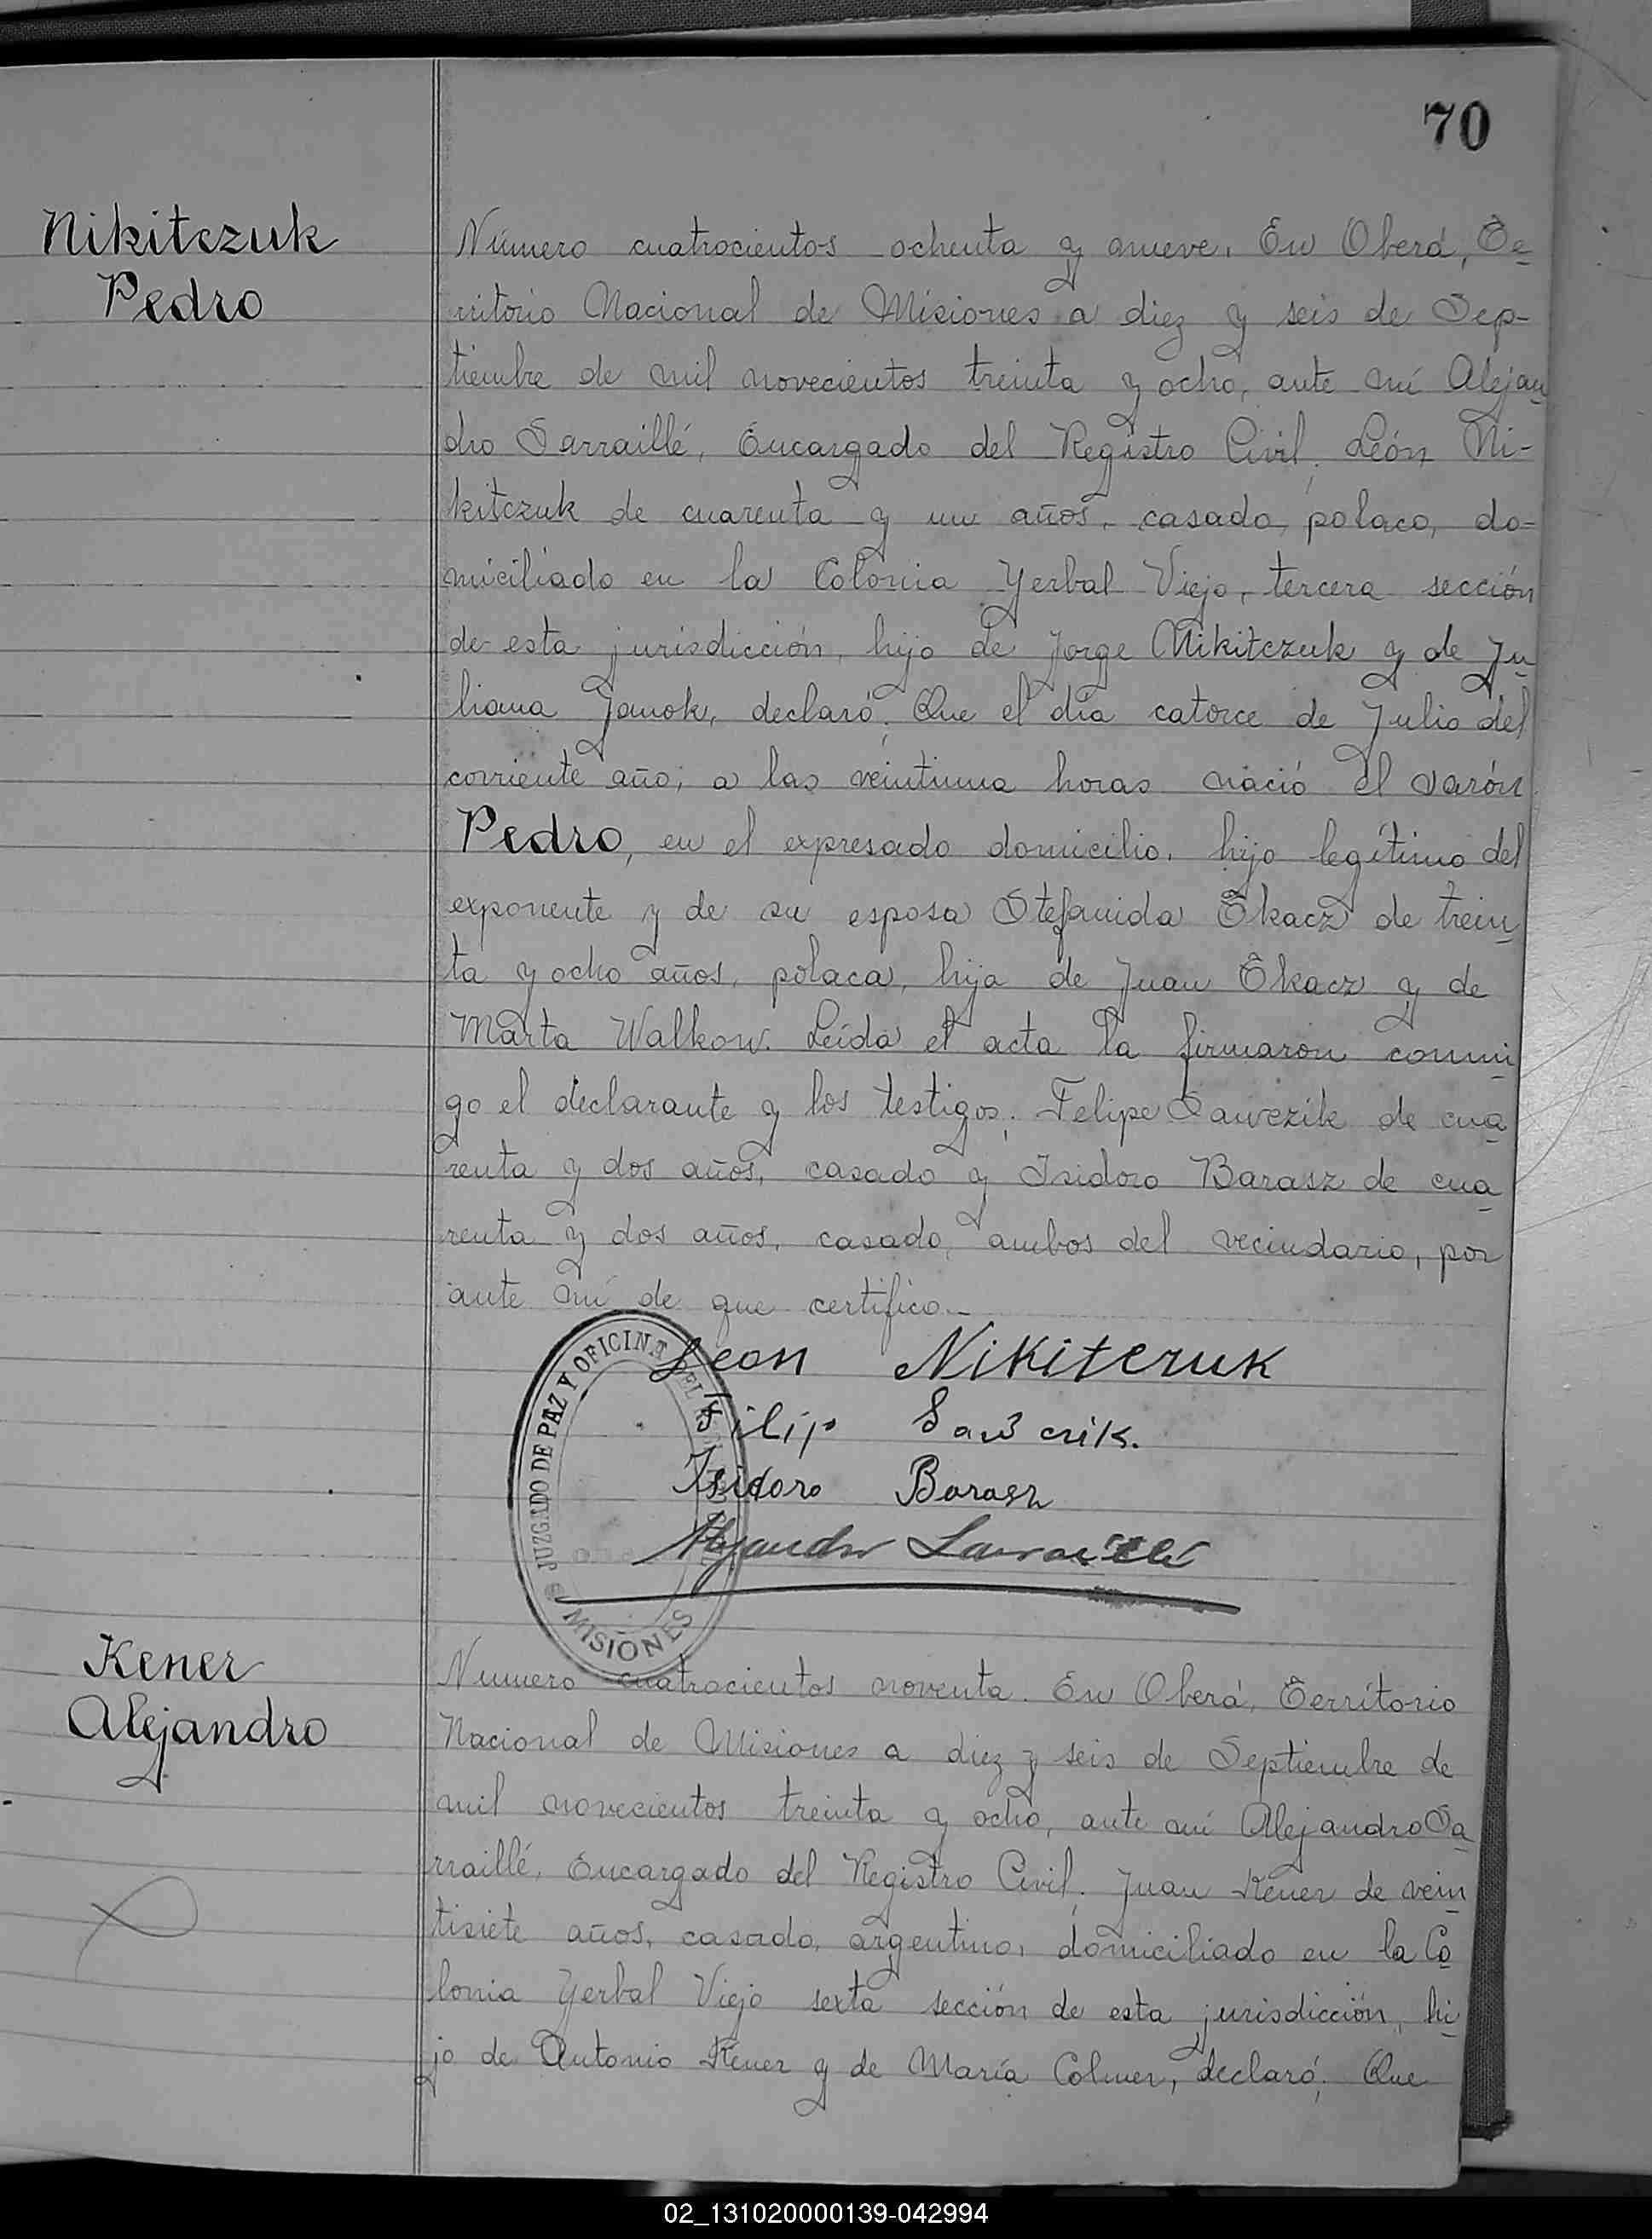 70
Nikitczuk
Pedro
Número cuatrocientos ochenta y nueve. En Oberá, Te
rritorio Nacional de Misiones a diez y seis de Sep-
tiembre de mil novecientos treinta y ocho, ante mí Alejan
dro Sarraillé, Encargado del Registro Civil, León Ni-
kitczuk de cuarenta y un años, casado, polaco, do=
miciliado en la Colonia Yerbal Viejo, tercera sección
de esta jurisdicción, hijo de Jorge Nikitczuk y de Ju
liana Janok, declaró: Que el día catorce de Julio del
corriente año, a las veintiuna horas nació el varón
Pedro, en el expresado domicilio, hijo legítimo del
exponente y de su esposa Stefanida Tkacz de trein
ta y ocho años, polaca, hija de Juan Tkacz y de
Marta Walkow. Leída el acta la firmaron conmi
go el declarante y los testigos: Felipe Sawczik de cua
renta y dos años, casado y Isidoro Barasz de cua
renta y dos años, casado, ambos del vecindario, por
ante mí de que certifico.-
Leon Nikitczuk
Filip Sawczik.
Isidoro Barasz
Alejandro Sarraillé
JUZGADO DE PAZ Y OFICINA DEL
MISIONES
Kener
Alejandro
Numero cuatrocientos noventa. En Oberá, Territorio
Nacional de Misiones a diez y seis de Septiembre de
mil novecientos treinta y ocho, ante mí Alejandro Sa
rraillé, Encargado del Registro Civil, Juan Kener de vein
tisiete años, casado, argentino, domiciliado en la Co
lonia Yerbal Viejo sexta sección de esta jurisdicción, hi
jo de Antonio Kener y de María Colmer, declaró: Que
02_131020000139-042994